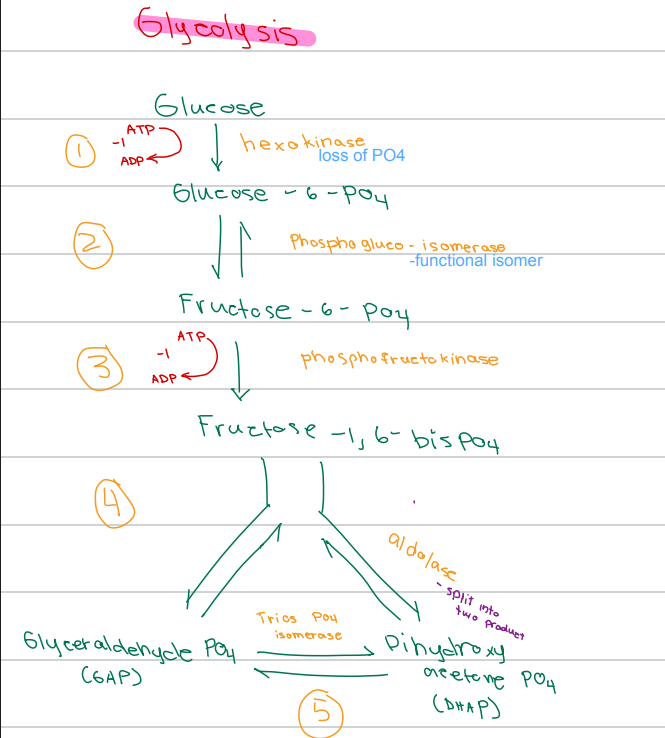 Glycolysis
Glucose
① ATP
-1
ADP
hexokinase
loss of PO4
Glucose - 6 - PO4
② Phosphogluco - isomerase
-functional isomer
Fructose - 6 - PO4
③ ATP
-1
ADP
phosphofructokinase
Fructose -1,6- bisPO4
④
aldolase
- split into
two product
Trios PO4
isomerase
Glyceraldehyde PO4
(GAP)
Dihydroxy
acetone PO4
(DHAP)
⑤